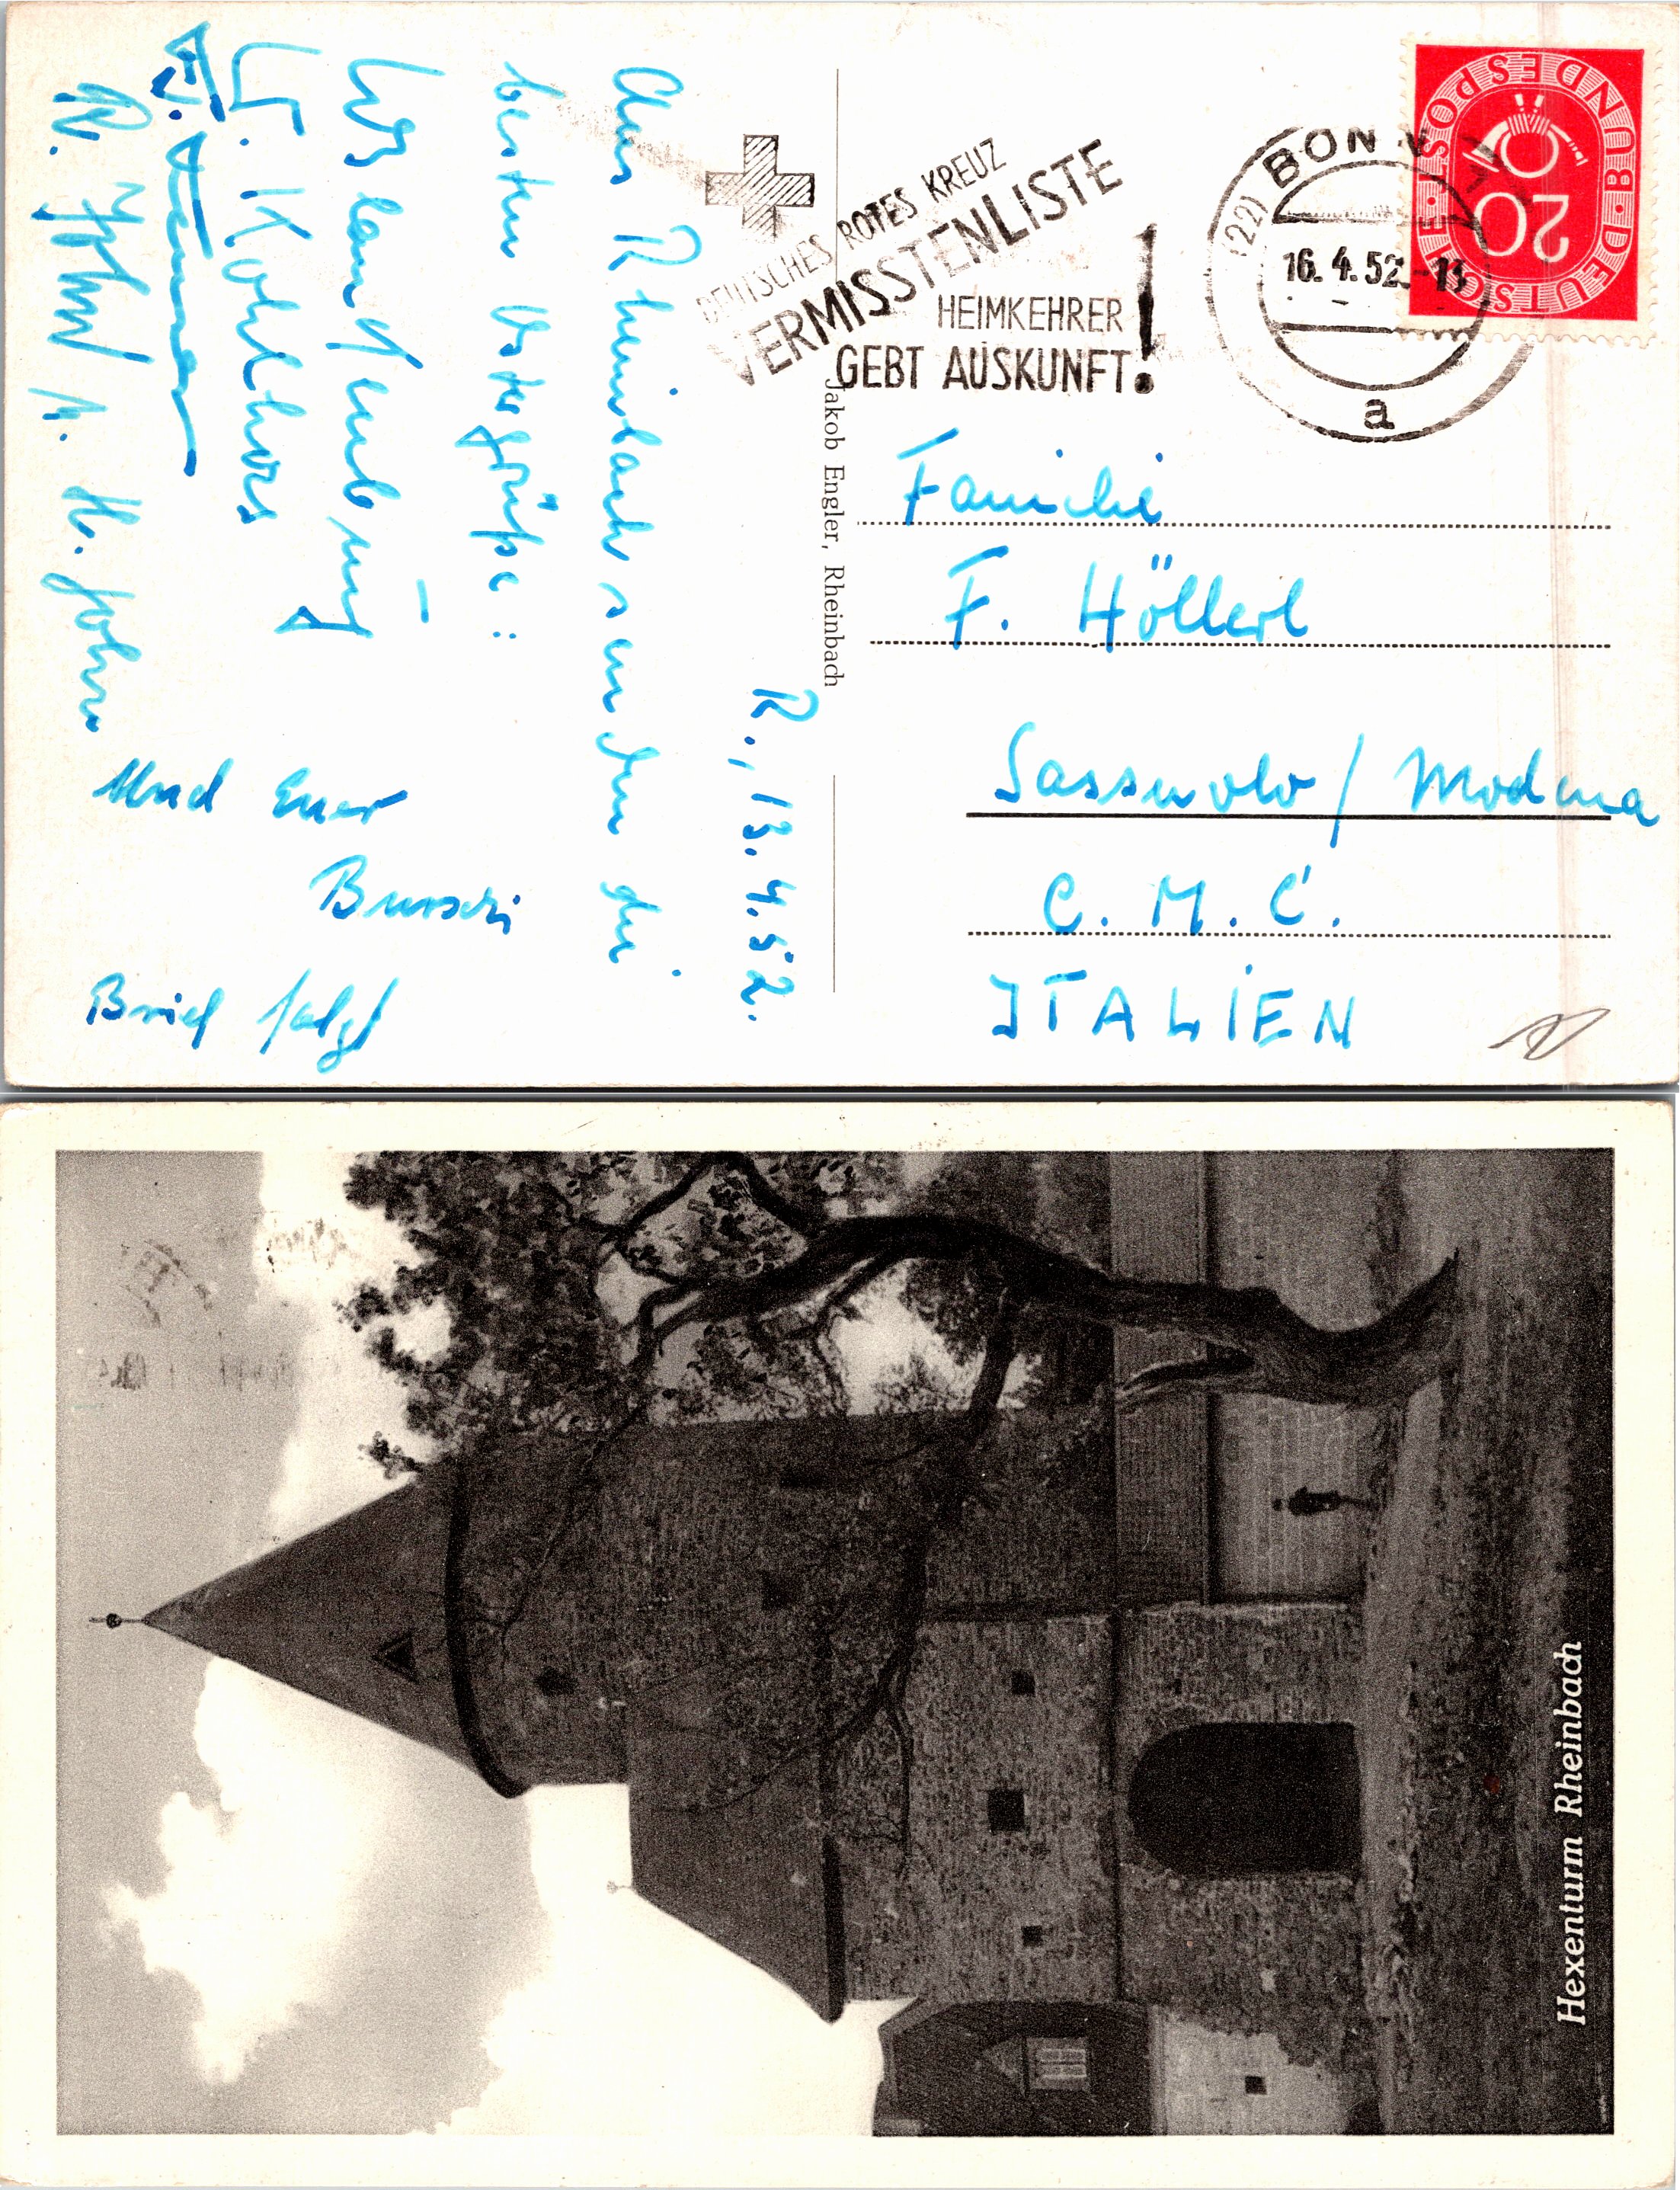 R., 13.4.52.
Aus Rheinbach senden die
besten Ostergrüße:
W. Kohlhors
H. John
Und Euer
Burschi
Brief folgt
Jakob Engler, Rheinbach
DEUTSCHES ROTES KREUZ
VERMISSTENLISTE
HEIMKEHRER
GEBT AUSKUNFT!
(22) BONN
16.4.52.-13
a
DEUTSCHE BUNDESPOST
20
Familie
F. Höllerl
Sassuolo / Modena
C. M. C.
ITALIEN
Hexenturm Rheinbach